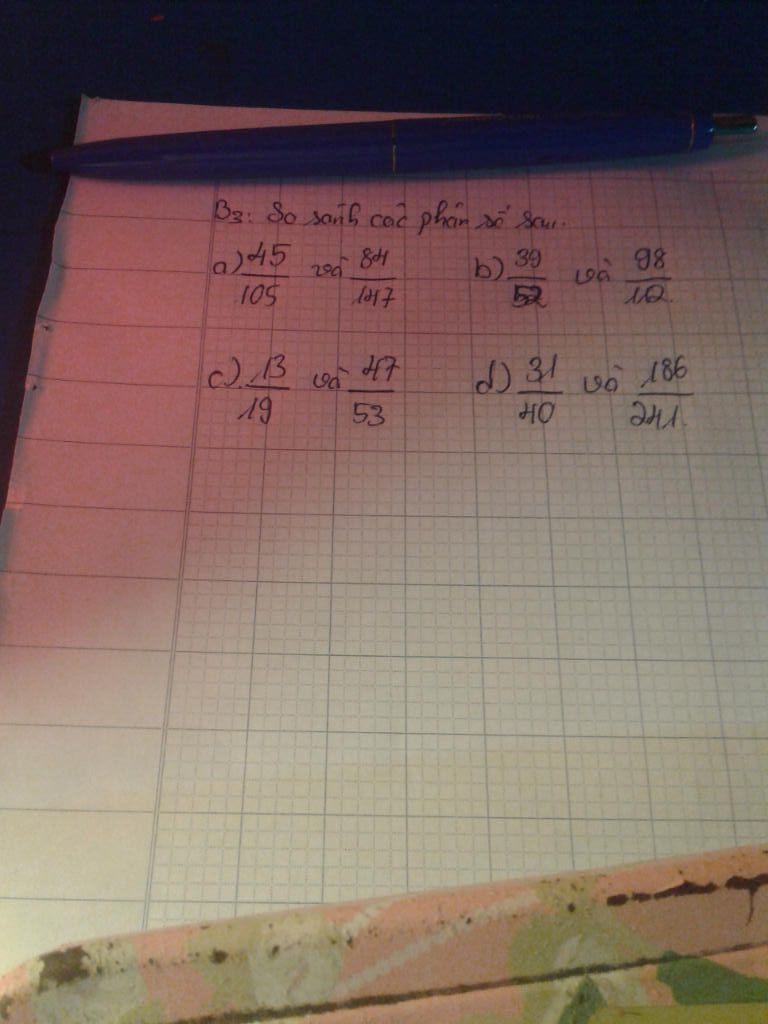 B3: So sánh các phân số sau.
a) 45/105 và 84/147 b) 39/52 và 98/112
c) 13/19 và 47/53 d) 31/40 và 186/241